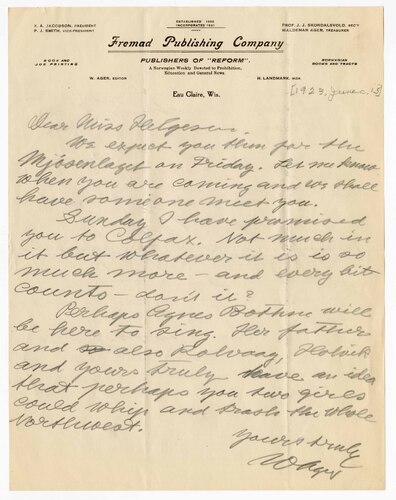 K. A. JACOBSON, PRESIDENT
P. J. SMITH, VICE-PRESIDENT
ESTABLISHED 1895
INCORPORATED 1901
PROF. J. J. SKORDALSVOLD, REC'Y
WALDEMAR AGER, TREASURER
Fremad Publishing Company
BOOK AND
JOB PRINTING
PUBLISHERS OF "REFORM".
A Norwegian Weekly Devoted to Prohibition,
Education and General News.
NORWEGIAN
BOOKS AND TRACTS
W. AGER, EDITOR
H. LANDMARK, MGR.
Eau Claire, Wis.
[1923, June 15]
Dear Miss Helgesen.
We expect you then for the
Mjosenlaget on Friday. Let me know
when you are coming and we shall
have someone meet you.
Sunday I have promised
you to Colfax. Not much in
it but whatever it is is so
much more – and every bit
counts – don't it?
Perhaps Agnes Bothne will
be here to sing. Her father
and also Rolvaag, Holvick
and yours truly have an idea
that perhaps you two girls
could whip and trash the whole
Northwest.
Yours truly
W Ager